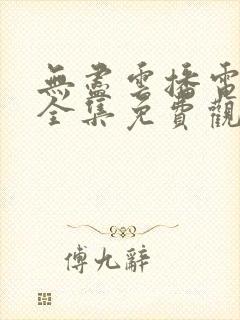 無盡雲播電
全集免費觀
傅九辭